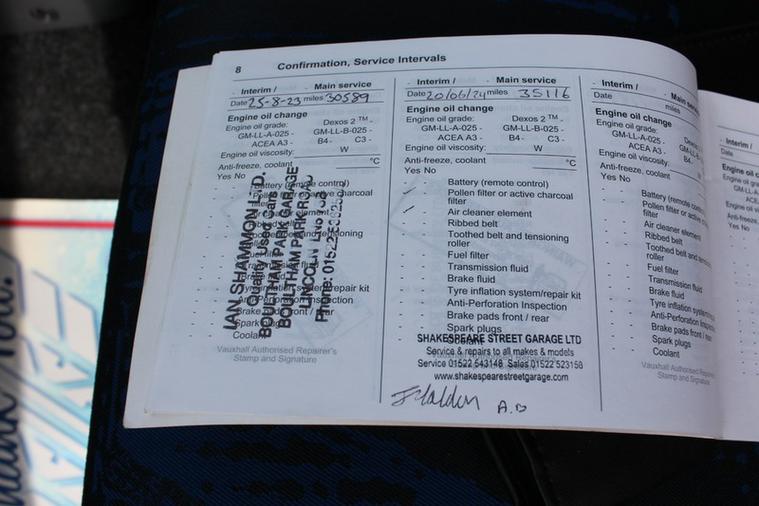 8 Confirmation, Service Intervals
Interim / Main service
Date 25-8-23 miles 30589
Engine oil change
Engine oil grade: Dexos 2 ™
GM-LL-A-025 - GM-LL-B-025 -
ACEA A3 - B4 - C3 -
Engine oil viscosity: W
Anti-freeze, coolant °C
Yes No
Battery (remote control)
Pollen filter or active charcoal
filter
Air cleaner element
Ribbed belt
Fuel filter
Tyre inflation system/repair kit
Anti-Perforation Inspection
Brake pads front / rear
Spark plugs
Coolant
IAN SHAMMON LTD.
Quality Used Cars
BOULTHAM PARK GARAGE
BOULTHAM PARK ROAD
LINCOLN
Phone: 01522
Vauxhall Authorised Repairer's
Stamp and Signature
Interim / Main service
Date 20/06/24 miles 35116
Engine oil change
Engine oil grade: Dexos 2 ™
GM-LL-A-025 - GM-LL-B-025 -
ACEA A3 - B4 - C3 -
Engine oil viscosity: W
Anti-freeze, coolant °C
Yes No
Battery (remote control)
Pollen filter or active charcoal
filter
Air cleaner element
Ribbed belt
Toothed belt and tensioning
roller
Fuel filter
Transmission fluid
Brake fluid
Tyre inflation system/repair kit
Anti-Perforation Inspection
Brake pads front / rear
Spark plugs
SHAKESPEARE STREET GARAGE LTD
Service & repairs to all makes & models
Service 01522 543148 Sales 01522 523158
www.shakespearestreetgarage.com
A.B
Interim / Main
Date miles
Engine oil change
Engine oil grade:
GM-LL-A-025 - GM-LL
ACEA A3 - B4 -
Engine oil viscosity:
Anti-freeze, coolant
Yes No
Battery (remote
Pollen filter or active
filter
Air cleaner element
Ribbed belt
Toothed belt and
roller
Fuel filter
Transmission fluid
Brake fluid
Tyre inflation system
Anti-Perforation
Brake pads front /
Spark plugs
Coolant
Vauxhall Authorised Repairer
Stamp and Signature
Interim /
Date
Engine oil
Yes No